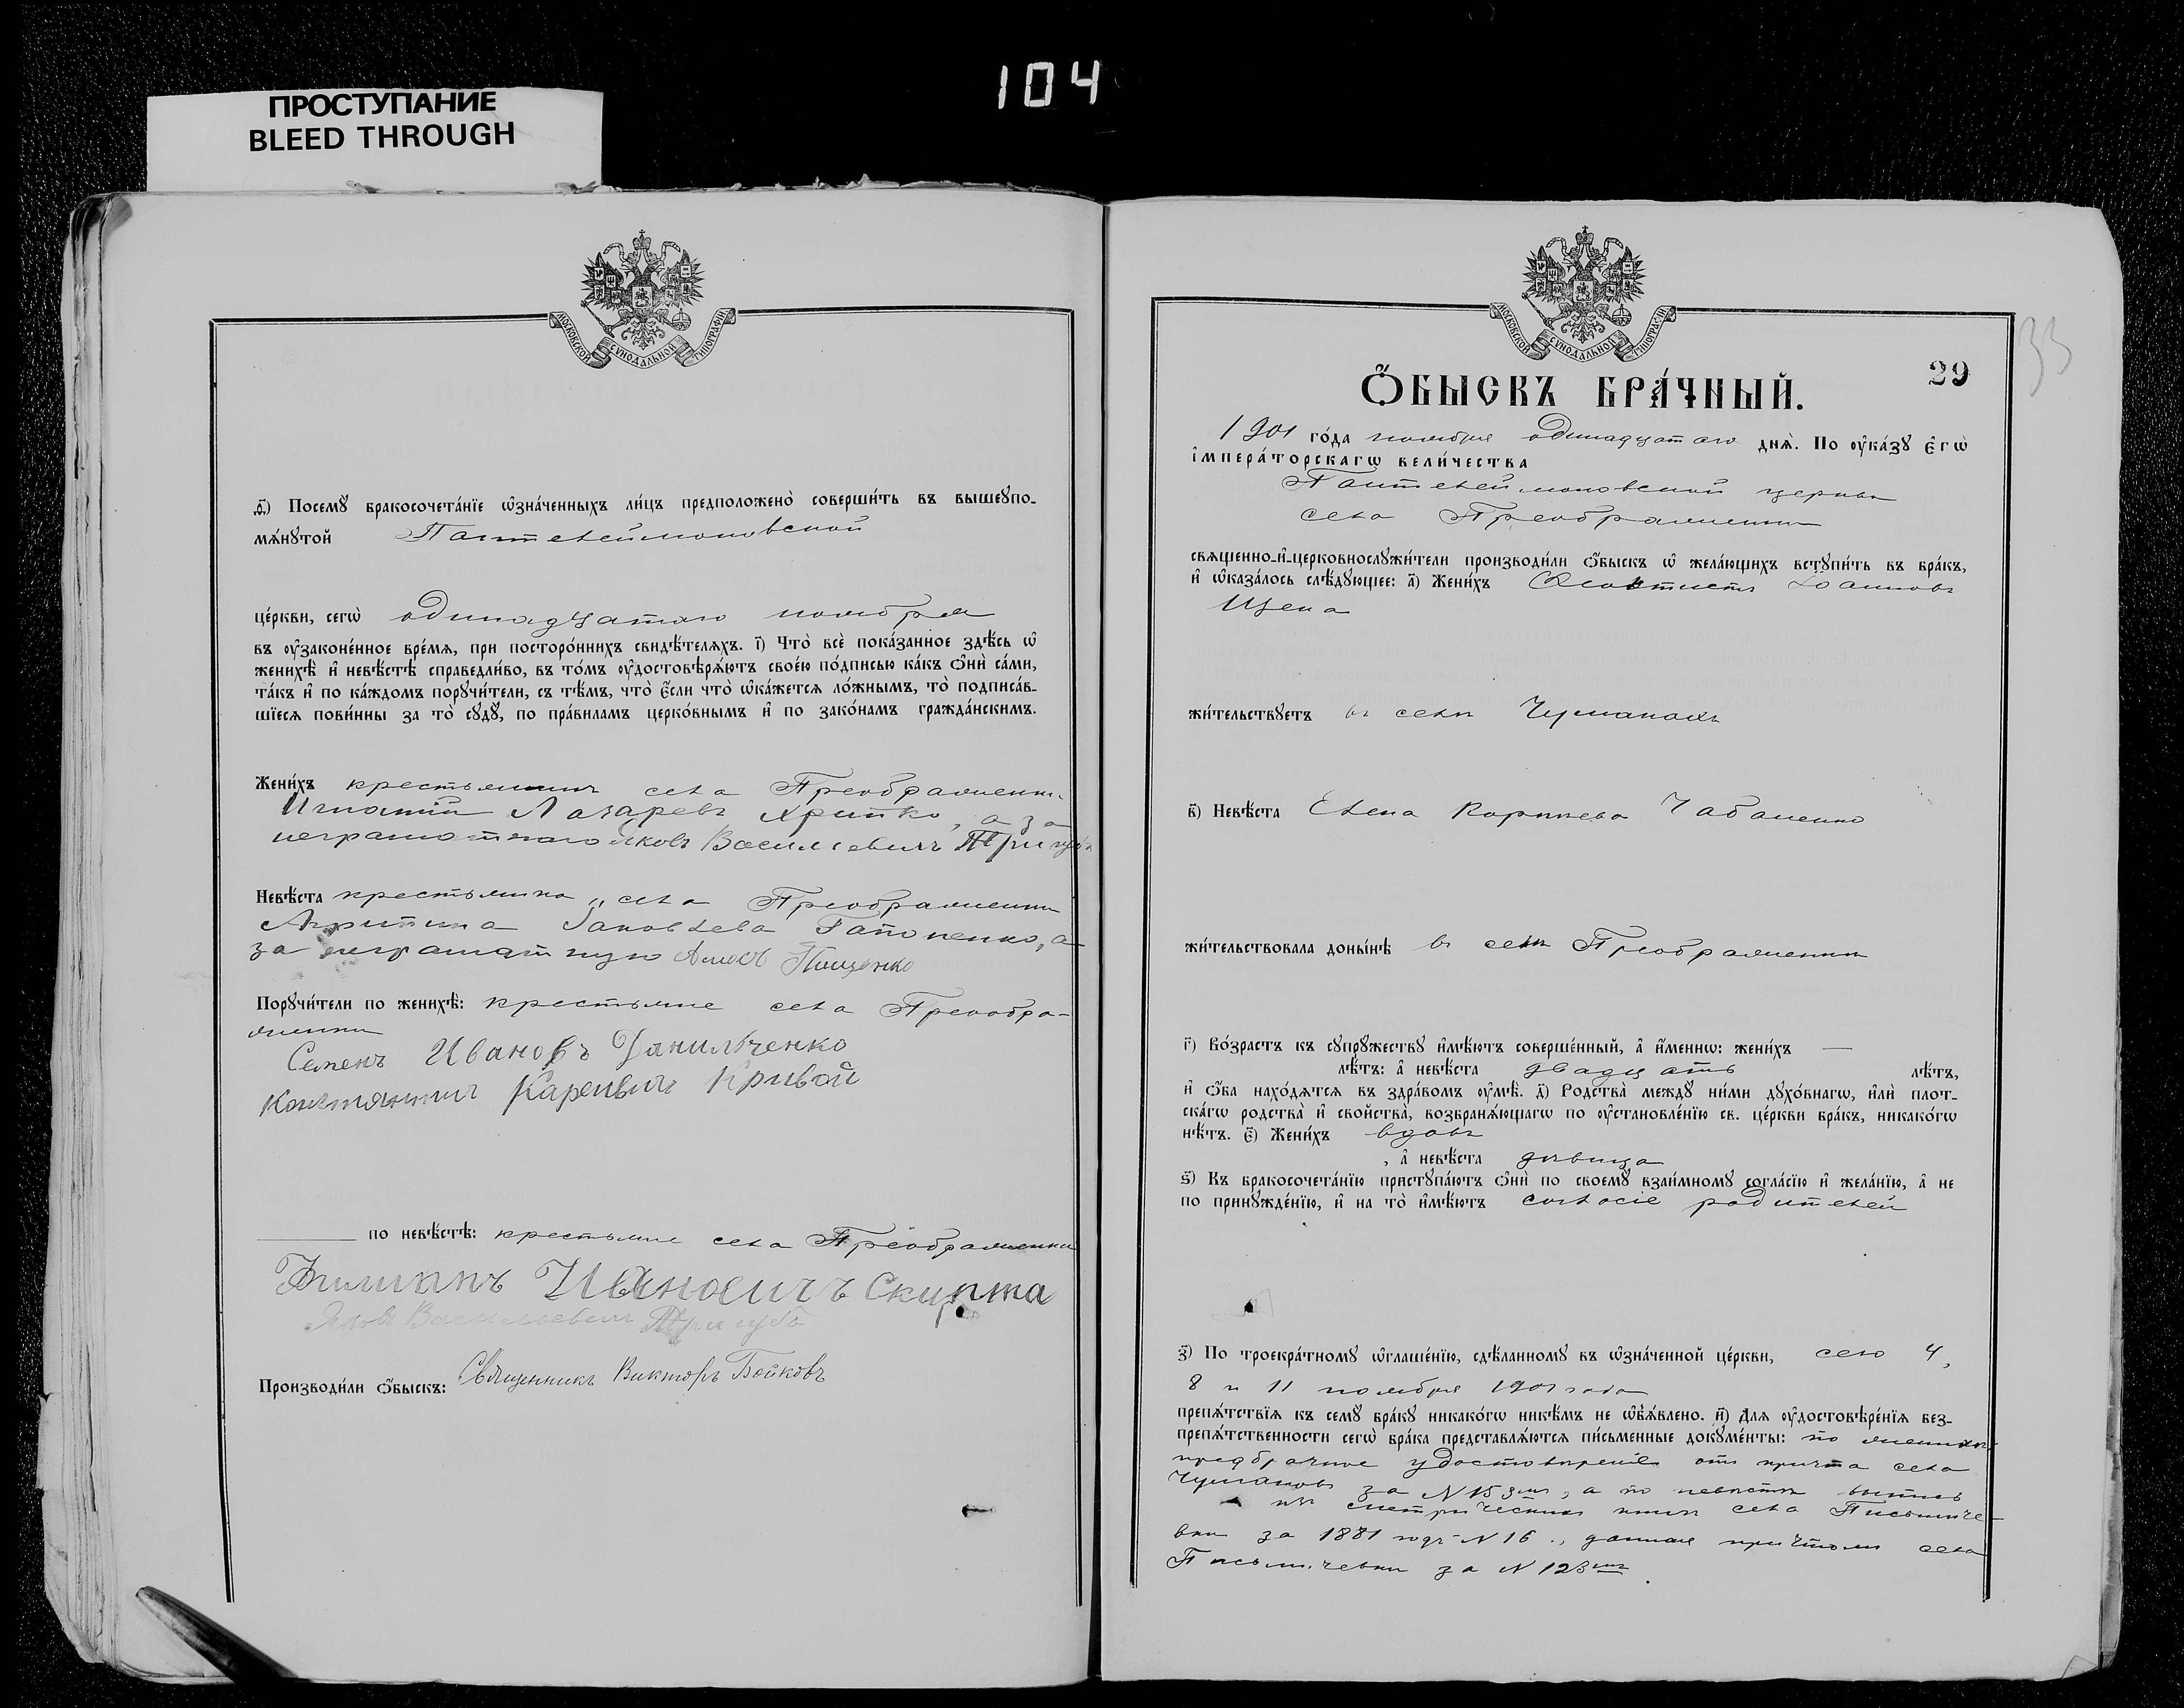 104
ПРОСТУПАНИЕ
BLEED THROUGH
МОСКОВСКОЙ СУНОДАЛЬНОЙ ТИПОГРАФІИ
д҃) Посемꙋ бракосочета́нїе ѡ҆зна́ченныхъ ли́цъ предположено̀ соверши́ть въ вышеꙋпо-
мѧ́нꙋтой Пантелеймоновской
це́ркви, сегѡ̀ одинадцатаго ноября
въ ᲂу҆законе́нное вре́мѧ, при посторо́ннихъ свидѣ́телѧхъ. і҃) Что̀ всѐ пока́занное здѣ́сь ѡ҆
женихѣ̀ и҆ невѣ́стѣ справедли́во, въ то́мъ ᲂу҆достовѣрѧ́ютъ свое́ю по́дписью ка́къ ѻ҆нѝ са́ми,
та́къ и҆ по ка́ждомъ порꙋчи́тели, съ тѣ́мъ, что̀ є҆́сли что̀ ѡ҆ка́жетсѧ ло́жнымъ, то̀ подписа́в-
шїесѧ пови́нны за то̀ сꙋдꙋ̀, по пра́виламъ церко́внымъ и҆ по зако́намъ гражда́нскимъ.
Жени́хъ крестьянинъ села Преображенки
Игнатій Лазаревъ Хрипко, а за
неграмотнаго Яковъ Васильевичъ Тригубъ
Невѣ́ста крестьянка села Преображенки
Агрипина Іаковлева Гапоненко, а
за неграматную Пищенко
Порꙋчи́тели по женихѣ̀: крестьяне села Преобра-
женки
Семенъ Ивановъ Данильченко
Константинъ Карпивичъ Кривой
по невѣ́стѣ: крестьяне села Преображенки
Филиппъ Ивановичъ Скирта
Яковъ Васильевичъ Тригубъ
Производи́ли ѻ҆́быскъ: Священникъ Викторъ Бойковъ
МОСКОВСКОЙ СУНОДАЛЬНОЙ ТИПОГРАФІИ
29
33
Ѻ҆́БЫСКЪ БРА́ЧНЫЙ.
1901 го́да ноября одинадцатаго днѧ̀. По ᲂу҆ка́зꙋ є҆гѡ̀
і҆мпера́торскагѡ вели́чества
Пантелеймоновской церкви
села Преображенки
свѧщенно-и҆-церковнослꙋжи́тели производи́ли ѻ҆́быскъ ѡ҆ жела́ющихъ встꙋпи́ть въ бра́къ,
и҆ ѡ҆каза́лось слѣ́дꙋющее: а҃) Жени́хъ Феоктистъ Іоанновъ
Щека
жи́тельствꙋетъ въ селѣ Чумакахъ
в҃) Невѣ́ста Елена Карпиева Чабаненко
жи́тельствовала доны́нѣ въ селѣ Преображенки
г҃) Во́зрастъ къ сꙋпрꙋ́жествꙋ и҆мѣ́ютъ соверше́нный, а҆ и҆́меннѡ: жени́хъ —
лѣ́тъ: а҆ невѣ́ста двадцать лѣ́тъ,
и҆ ѻ҆́ба нахо́дѧтсѧ въ здра́вомъ ᲂу҆мѣ̀. д҃) Родства̀ междꙋ ни́ми дꙋхо́внагѡ, и҆лѝ плот-
ска́гѡ родства̀ и҆ свойства̀, возбранѧ́ющагѡ по ᲂу҆становле́нїю св. це́ркви бра́къ, никако́гѡ
нѣ́тъ. є҃) Жени́хъ вдовъ
, а҆ невѣ́ста дѣвица
ѕ҃) Къ бракосочета́нїю пристꙋпа́ютъ ѻ҆нѝ по своемꙋ̀ взаи́мномꙋ согла́сїю и҆ жела́нїю, а҆ не
по принꙋжде́нїю, и҆ на то̀ и҆мѣ́ютъ согласіе родителей
з҃) По троекра́тномꙋ ѡ҆глаше́нїю, сдѣ́ланномꙋ въ ѡ҆зна́ченной це́ркви, сего 4,
8 и 11 ноября 1901 года
препѧ́тствїѧ къ семꙋ̀ бра́кꙋ никако́гѡ никѣ́мъ не ѡ҆б̾ѧ́влено. и҃) Длѧ ᲂу҆достовѣре́нїѧ без-
препѧ́тственности сегѡ̀ бра́ка представлѧ́ютсѧ пи́сьменные докꙋме́нты: по женихѣ
предбрачное удостовѣреніе отъ причта села
Чумаковъ за N 153мъ, а по невѣстѣ выпись
изъ метрической книги села Письмиче-
вки за 1881 годъ N 16., данная причтомъ села
Письмичевки за N 123мъ.